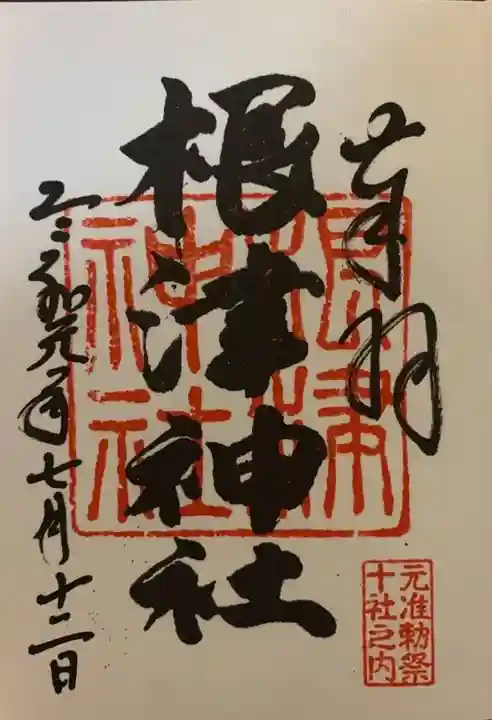 奉拝
根津神社
令和元年七月十二日
根津
神社
元准勅祭
十社之内